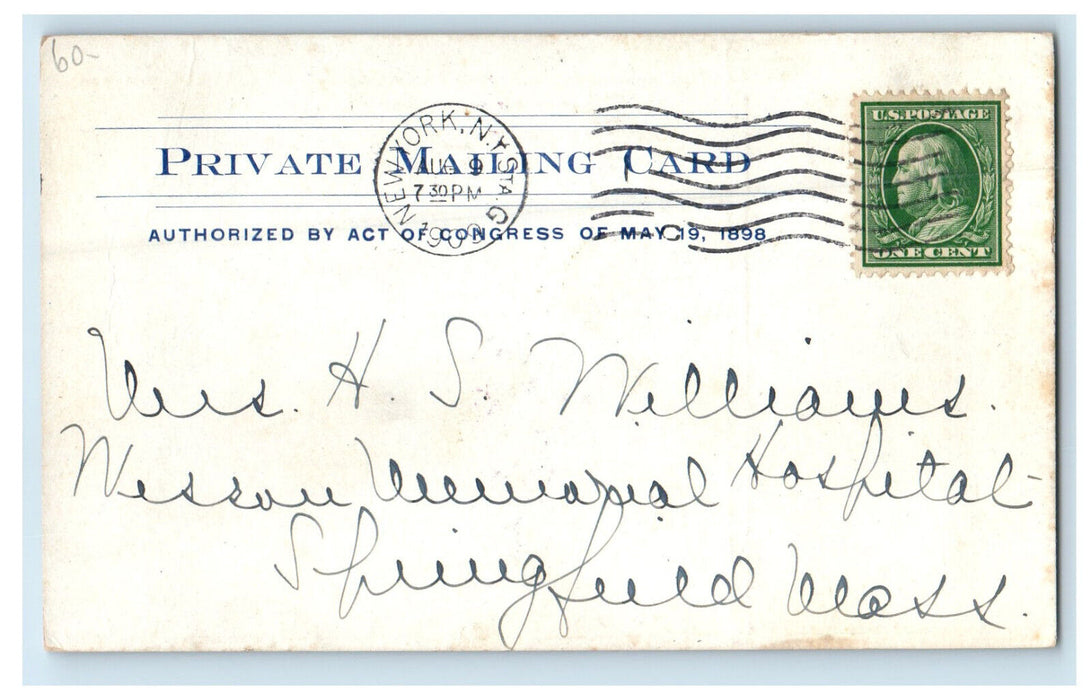 60-
U.S. POSTAGE
NEW YORK, N.Y. STA. G
AUG 9
7 30 PM
1909
PRIVATE MAILING CARD
AUTHORIZED BY ACT OF CONGRESS OF MAY 19, 1898
ONE CENT
Mrs. H. S. Williams.
Wesson Memorial Hospital
Springfield Mass.